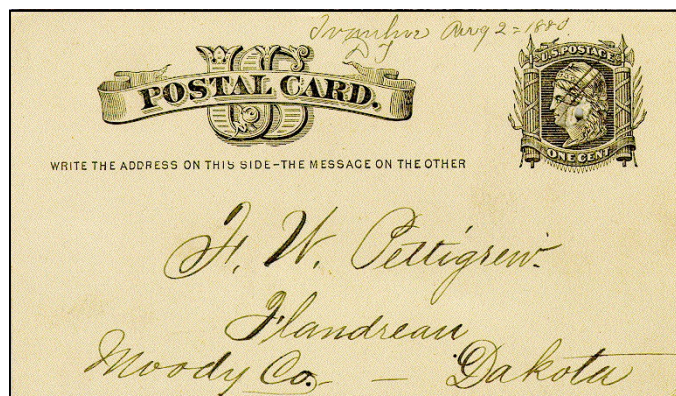 Ivanhoe Aug 2 = 1880.
D T
US
POSTAL CARD.
U.S. POSTAGE
ONE CENT
WRITE THE ADDRESS ON THIS SIDE - THE MESSAGE ON THE OTHER
F. W. Pettigrew.
Flandreau
Moody Co. — Dakota